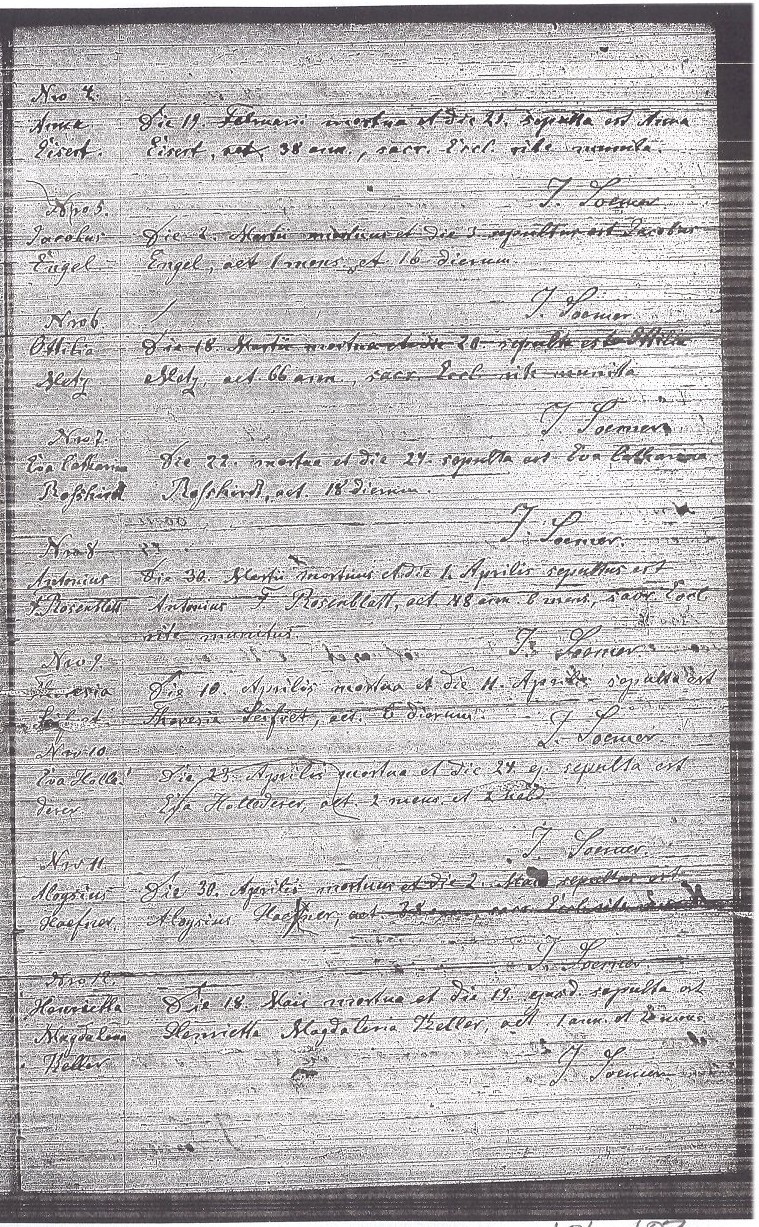 Nro 4.
Anna Die 19. Februarii mortua et die 21. sepulta est Anna
Eisert. Eisert, aet. 38 ann., sacr. Eccl. rite munita.
J. Soemer
Nro 5.
Jacobus Die 2. Martii mortuus et die 3 sepultus est Jacobus
Engel Engel, aet 1 mens et 16 dierum
J. Soemer
Nro 6
Ottilia Die 18. Martii mortua et die 20. sepulta est Ottilia
Metz Metz, aet. 66 ann., sacr. Eccl. rite munita
J. Soemer
Nro 7.
Eva Catharina Die 22. mortua et die 24. sepulta est Eva Catharina
aet. 18 dierum.
J. Soemer.
Nro 8
Antonius Die 30. Martii mortuus et die 1. Aprilis sepultus est
F. Rosenblatt Antonius F. Rosenblatt, aet. 48 ann. 6 mens, sacr. Eccl
rite munitus.
J. Soemer
Nro 9.
Theresia Die 10. Aprilis mortua et die 11. Aprilis sepulta est
Theresia Seifret, aet. 6 dierum.
J. Soemer
Nro 10
Eva Holle- Die 23. Aprilis mortua et die 24 ej. sepulta est
derer Eva Hollederer, aet. 2 mens. et
J. Soemer.
Nro 11
Aloysius Die 30. Aprilis mortuus et die 2. Maii sepultus est
Haefner. Aloysius Haefner, aet 38 ann., sacr. Eccl. rite
J. Soemer
Nro 12.
Henrietta Die 18. Maii mortua et die 19. ejusd. sepulta est
Magdalena Henrietta Magdalena Keller, aet. 1 ann. et 2 mens
Keller
J. Soemer